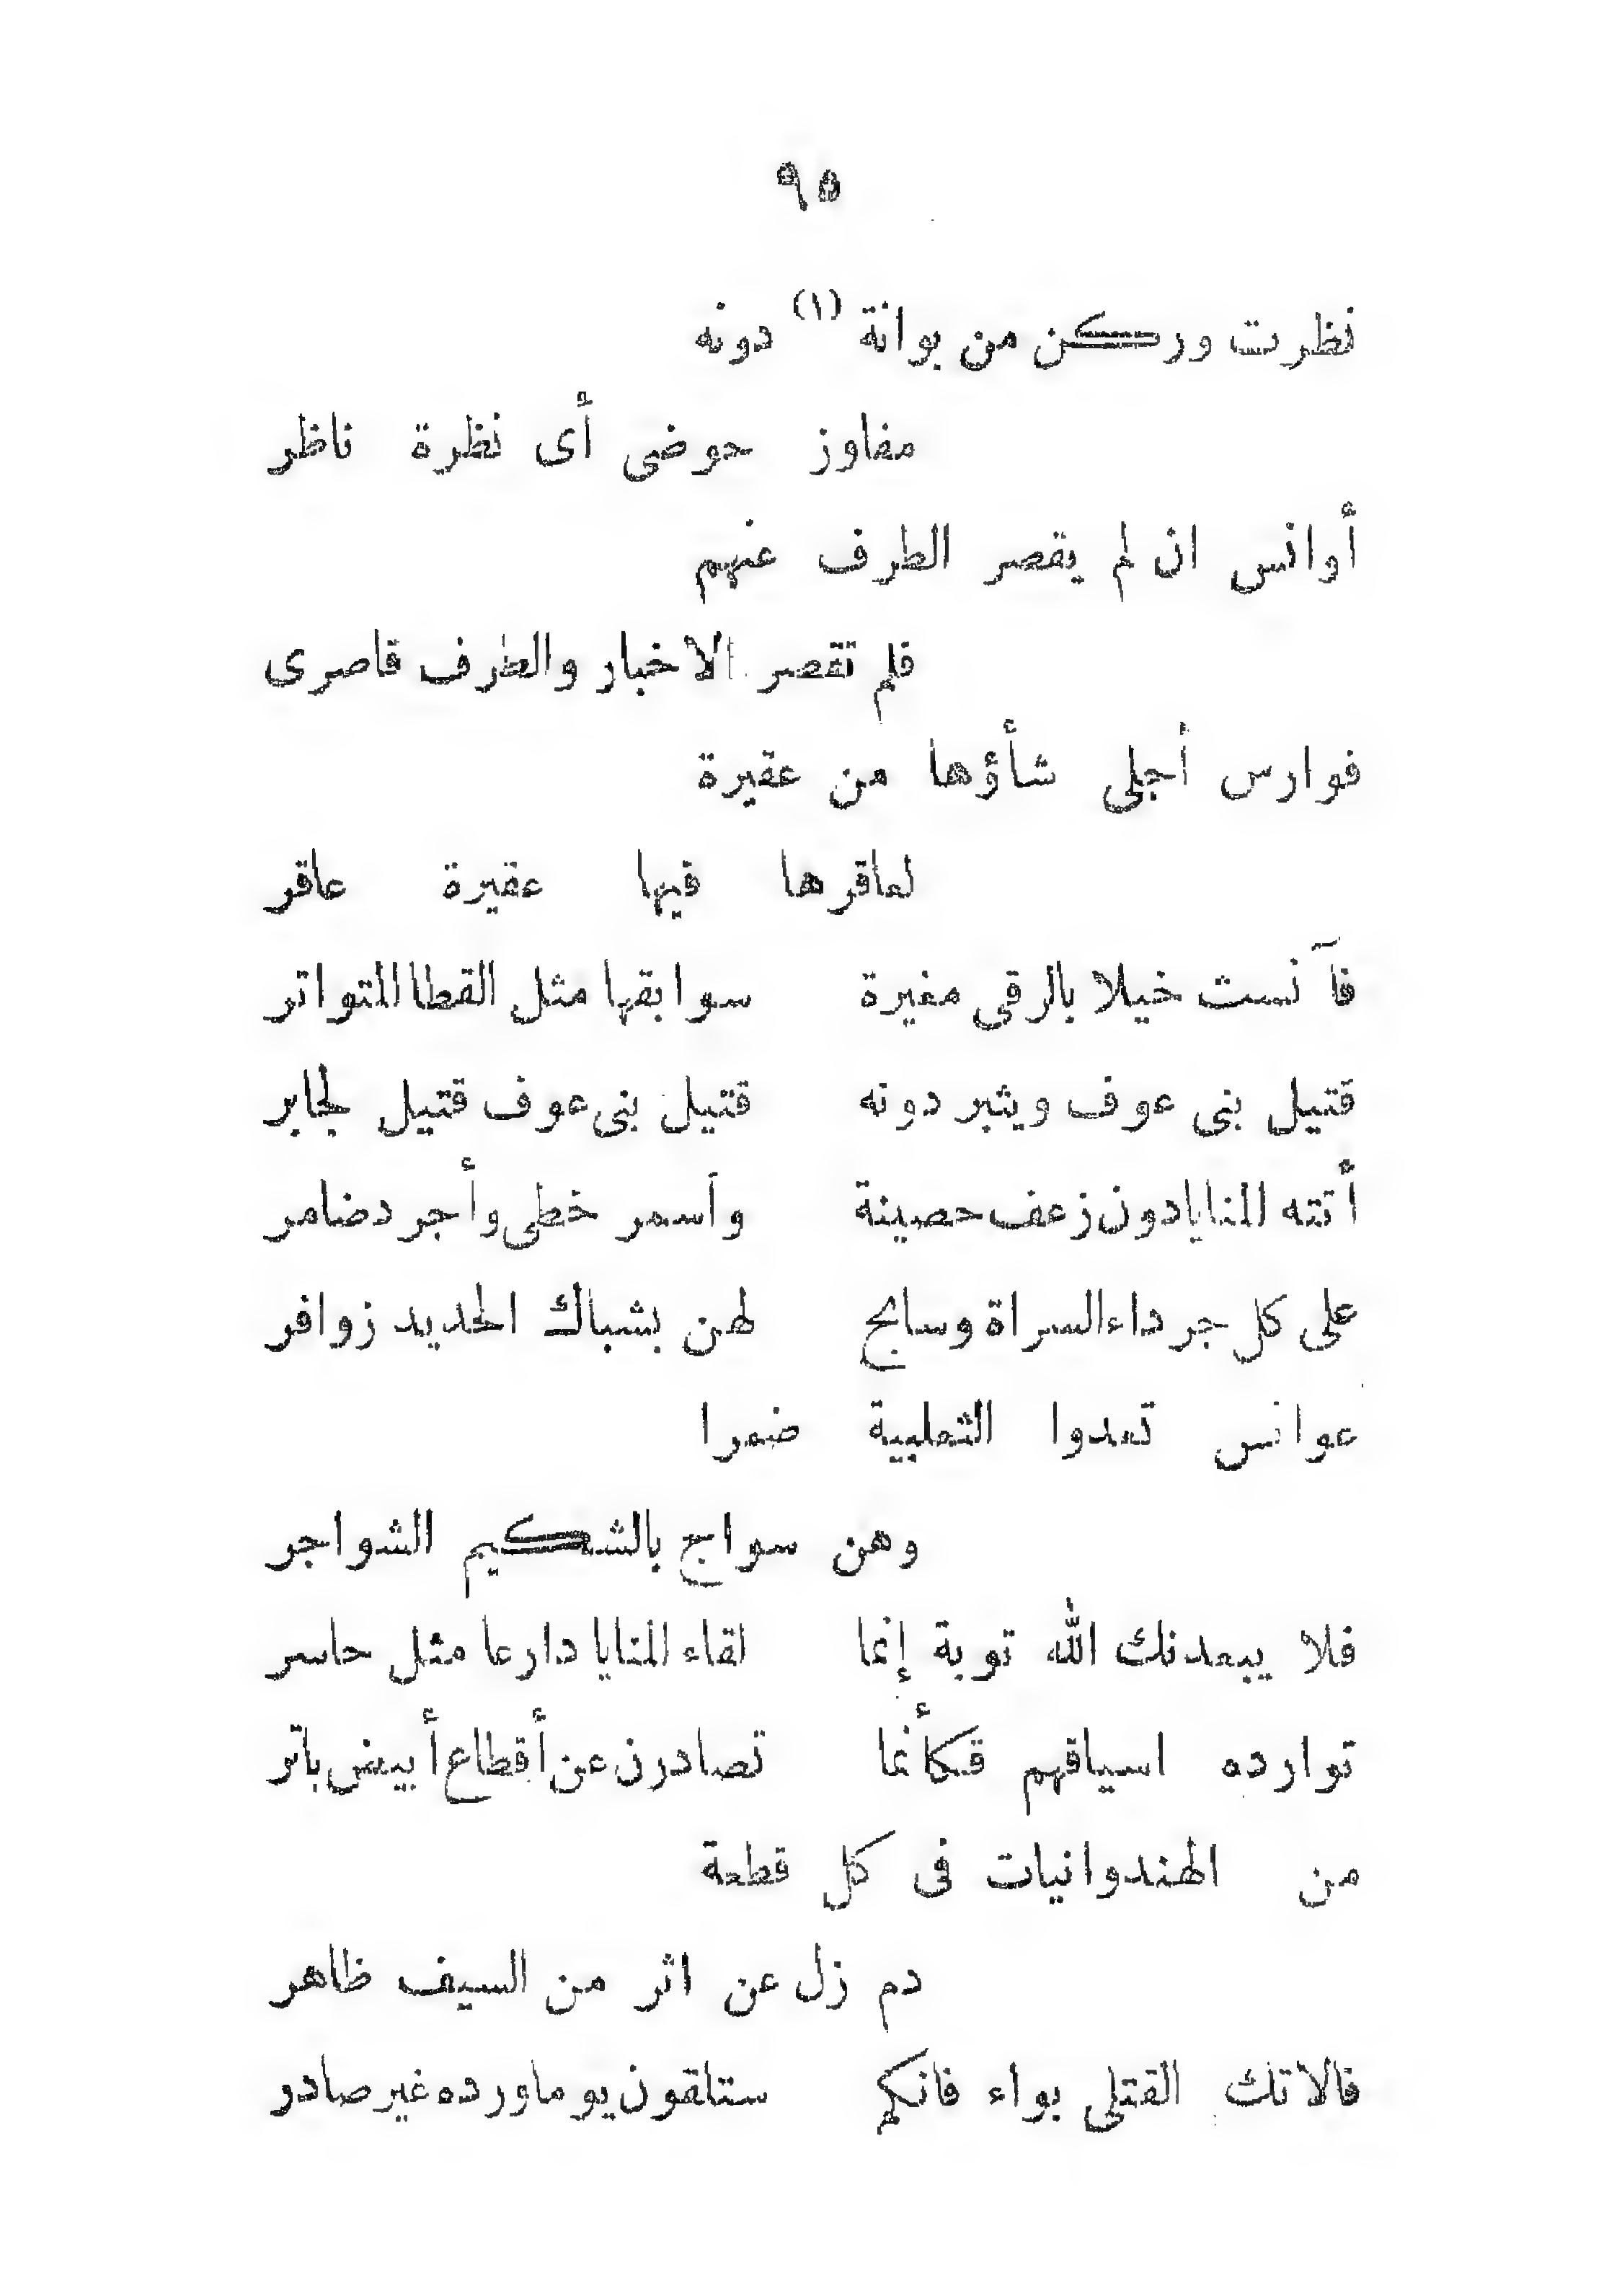 ٩٥
نظرت وركن من بوانة (١) دونه
مفاوز حوضى أى نظرة ناظر
أوانس ان لم يقصر الطرف عنهم
فلم تقصر الاخبار والطرف قاصرى
فوارس أجلى شأؤها من عقيرة
لعاقرها فيها عقيرة عاقر
فآنست خيلا بالرقى مغيرة سوابقها مثل القطا المتواتر
قتيل بنى عوف ويثبر دونه قتيل بنى عوف قتيل لجابر
أتته المنايا دون زعف حصينة وأسمر خطى وأجرد ضامر
على كل جرداء السراة وسابح لهن بشباك الحديد زوافر
عوانس تعدوا الثعلبية ضمرا
وهن سواج بالشكيم الشواجر
فلا يبعدنك الله توبة إنما لقاء المنايا دارعا مثل حاسر
توارده اسيافهم فكأنما تصادرن عن أقطاع أبيض باتر
من الهندوانيات فى كل قطعة
دم زل عن اثر من السيف ظاهر
فالا تك القتلى بواء فانكم ستلقون يوما ورده غير صادر